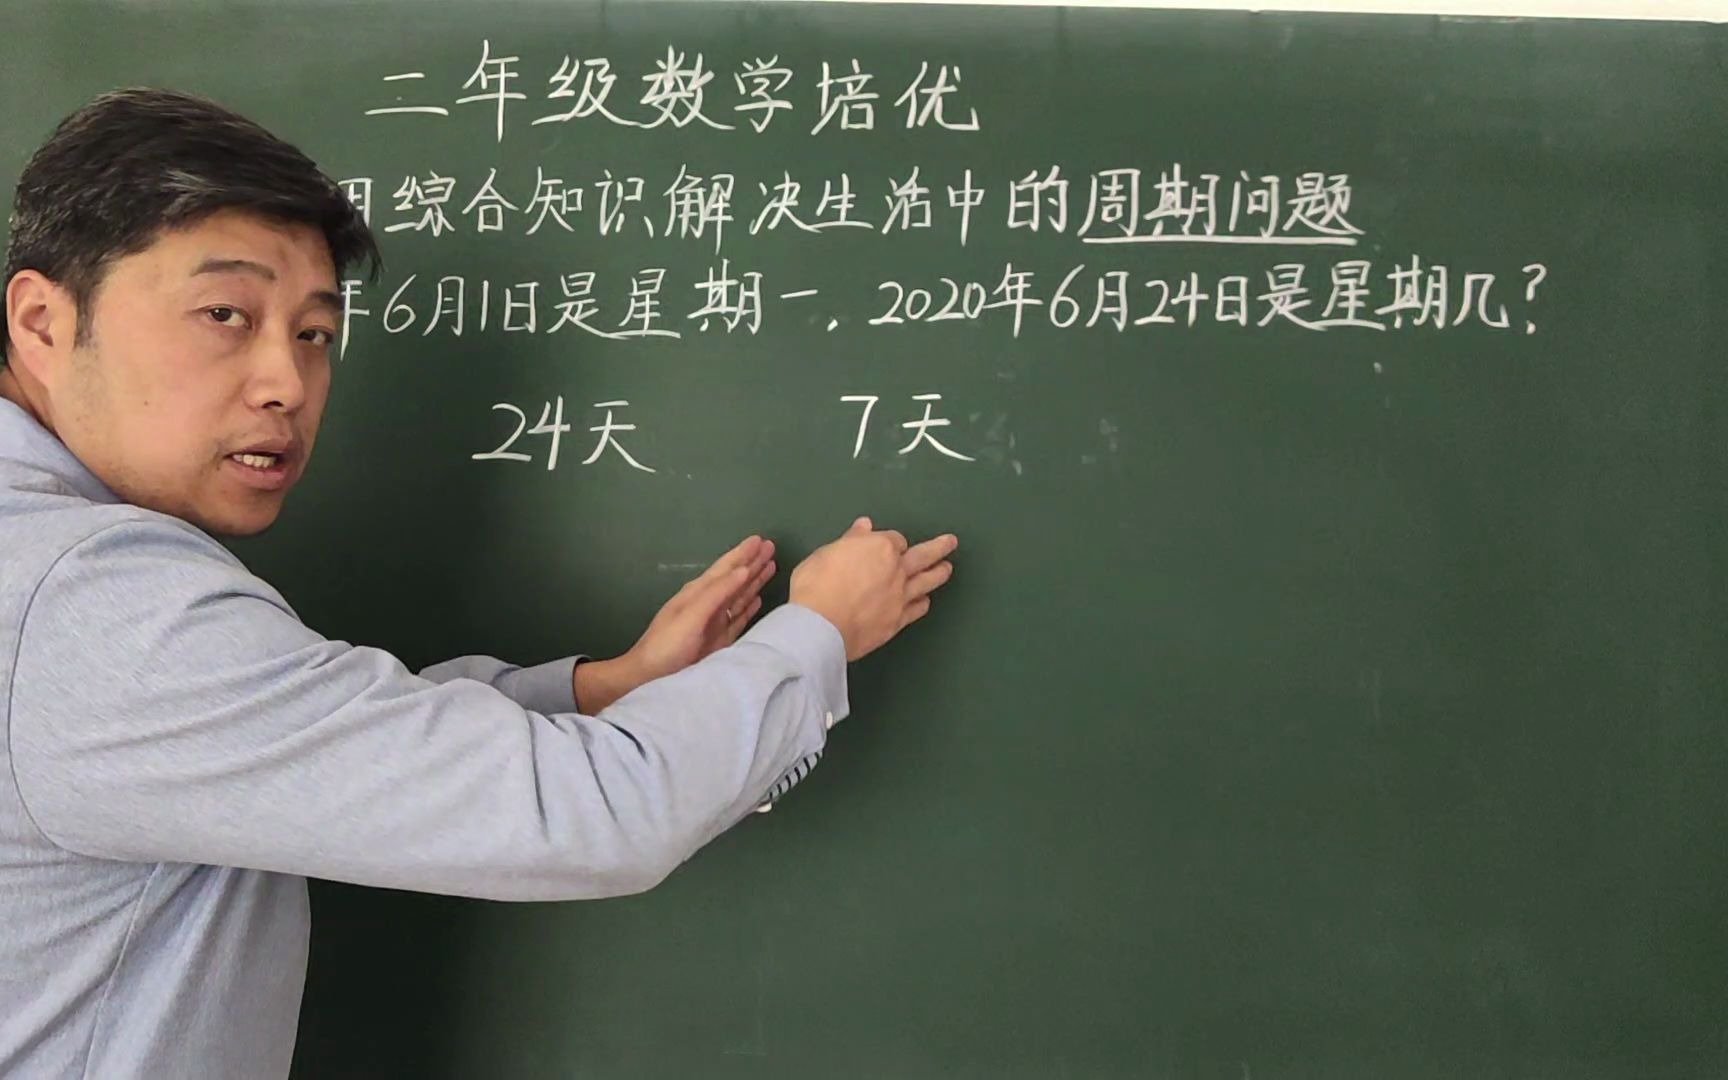 二年级数学培优
用综合知识解决生活中的周期问题
年6月1日是星期一，2020年6月24日是星期几？
24天 7天